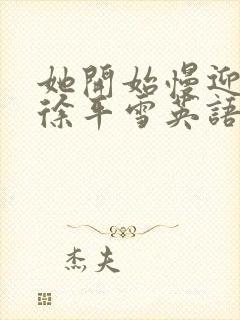 她開始慢迎
徐平雪英語
杰夫